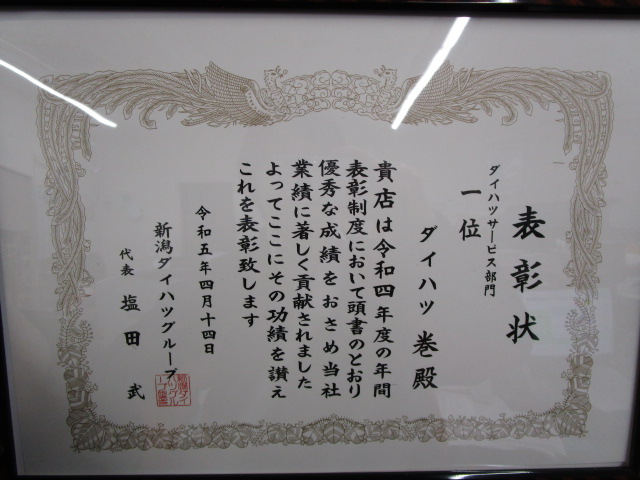 表彰状
ダイハツサービス部門
一位
ダイハツ 巻殿
貴店は令和四年度の年間
表彰制度において頭書のとおり
優秀な成績をおさめ当社
業績に著しく貢献されました
よってここにその功績を讃え
これを表彰致します
令和五年四月十四日
新潟ダイハツグループ
代表 塩田 武